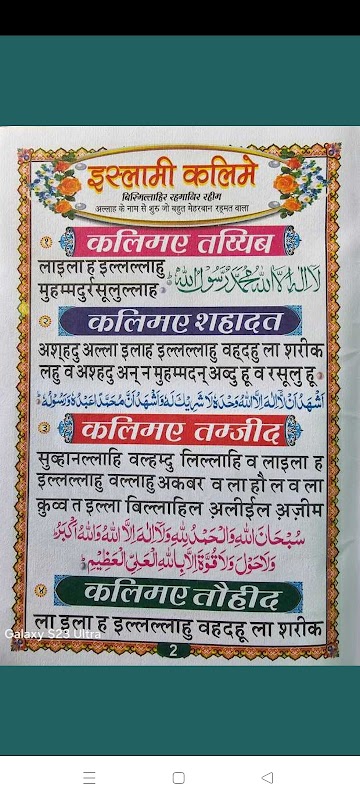 इस्लामी कलिमे
बिस्मिल्लाहिर रहमानिर रहीम
अल्लाह के नाम से शुरु जो बहुत मेहरबान रहमत वाला
१
कलिमए तय्यिब
लाइला ह इल्लल्लाहु
मुहम्मदुर्रसूलुल्लाह
لَا اِلٰهَ اِلَّا اللهُ مُحَمَّدٌ رَّسُوْلُ اللهِ
२
कलिमए शहादत
अश्हदु अल्ला इलाह इल्लल्लाहु वहदहु ला शरीक
लहु व अश्हदु अन् न मुहम्मदन् अब्दु हू व रसूलु हू
اَشْهَدُ اَنْ لَّا اِلٰهَ اِلَّا اللهُ وَحْدَهٗ لَا شَرِيْكَ لَهٗ وَاَشْهَدُ اَنَّ مُحَمَّدًا عَبْدُهٗ وَرَسُوْلُهٗ
३
कलिमए तम्जीद
सुब्हानल्लाहि वल्हम्दु लिल्लाहि व लाइला ह
इल्लल्लाहु वल्लाहु अकबर व ला हौ ल व ला
क़ुव्व त इल्ला बिल्लाहिल अलीईल अज़ीम
سُبْحَانَ اللهِ وَالْحَمْدُ لِلّٰهِ وَلَا اِلٰهَ اِلَّا اللهُ وَاللهُ اَكْبَرُ
وَلَا حَوْلَ وَلَا قُوَّةَ اِلَّا بِاللهِ الْعَلِيِّ الْعَظِيْمِ
४
कलिमए तौहीद
ला इला ह इल्लल्लाहु वहदहू ला शरीक
Galaxy S23 Ultra
2